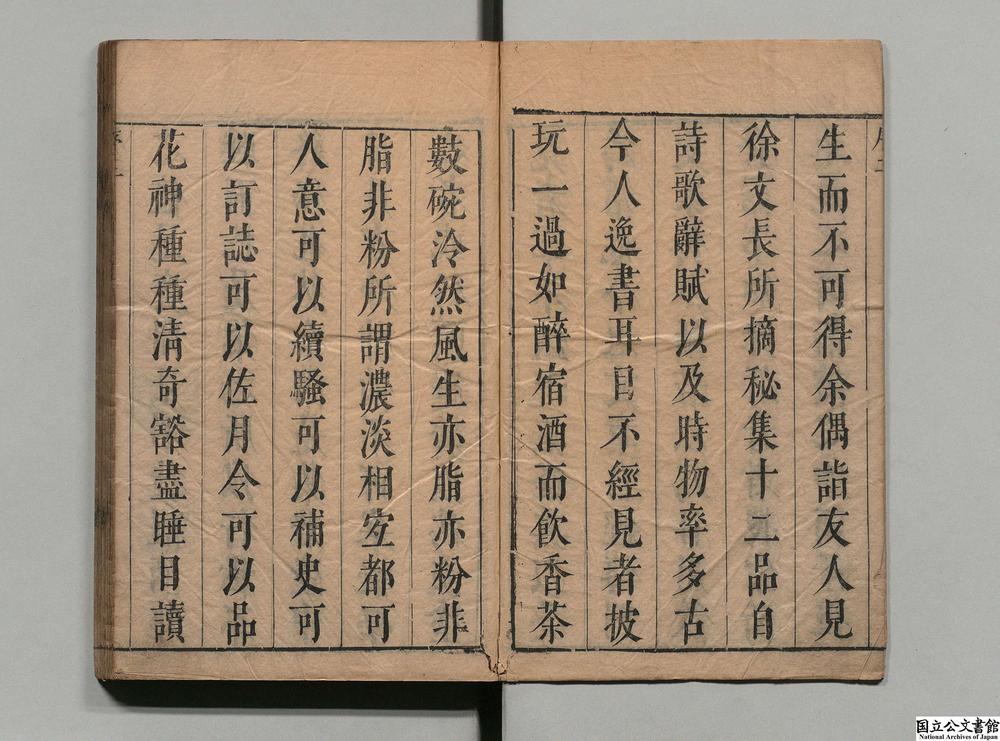 生而不可得余偶詣友人見
徐文長所摘秘集十二品自
詩歌辭賦以及時物率多古
今人逸書耳目不經見者披
玩一過如醉宿酒而飲香茶
數碗泠然風生亦脂亦粉非
脂非粉所謂濃淡相宜都可
人意可以續騷可以補史可
以訂誌可以佐月令可以品
花神種種清奇豁盡睡目讀
国立公文書館
National Archives of Japan